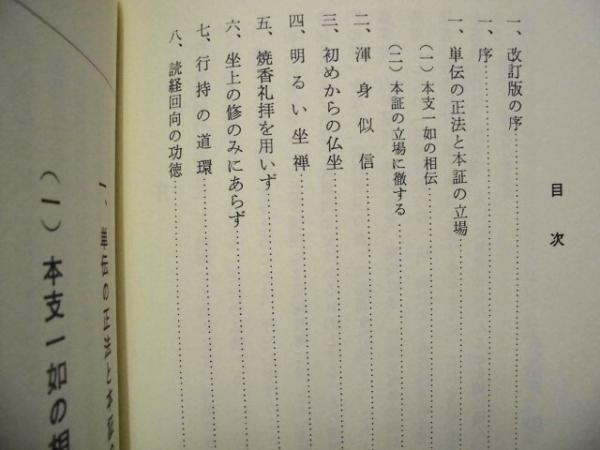 目次
一、改訂版の序
一、序
一、単伝の正法と本証の立場
(一)本支一如の相伝
(二)本証の立場に徹する
二、渾身似信
三、初めからの仏坐
四、明るい坐禅
五、焼香礼拝を用いず
六、坐上の修のみにあらず
七、行持の道環
八、読経回向の功徳
一、単伝の正法と本証
(一)本支一如の相